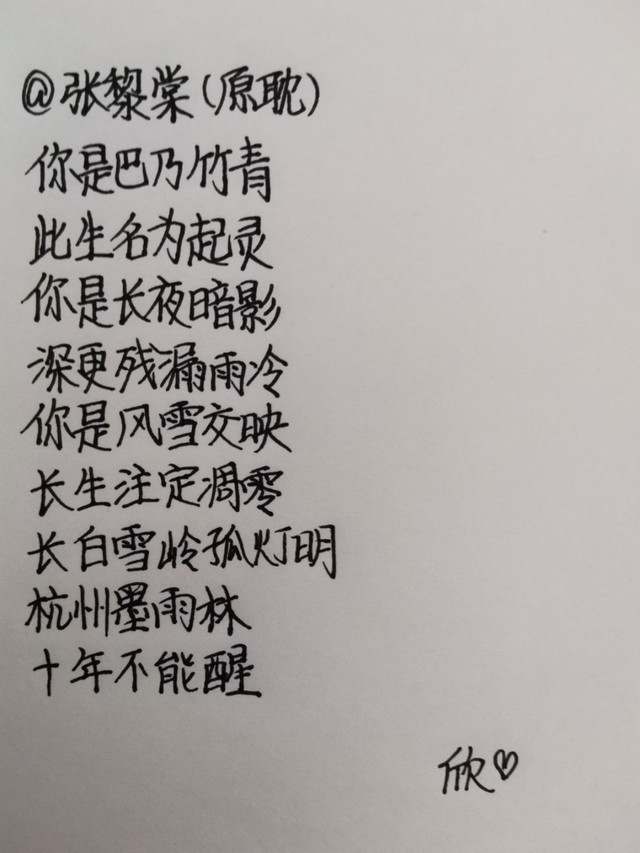 @张黎棠(原耽)
你是巴乃竹青
此生名为起灵
你是长夜暗影
深更残漏雨冷
你是风雪交映
长生注定凋零
长白雪岭孤灯明
杭州墨雨林
十年不能醒
欣♡